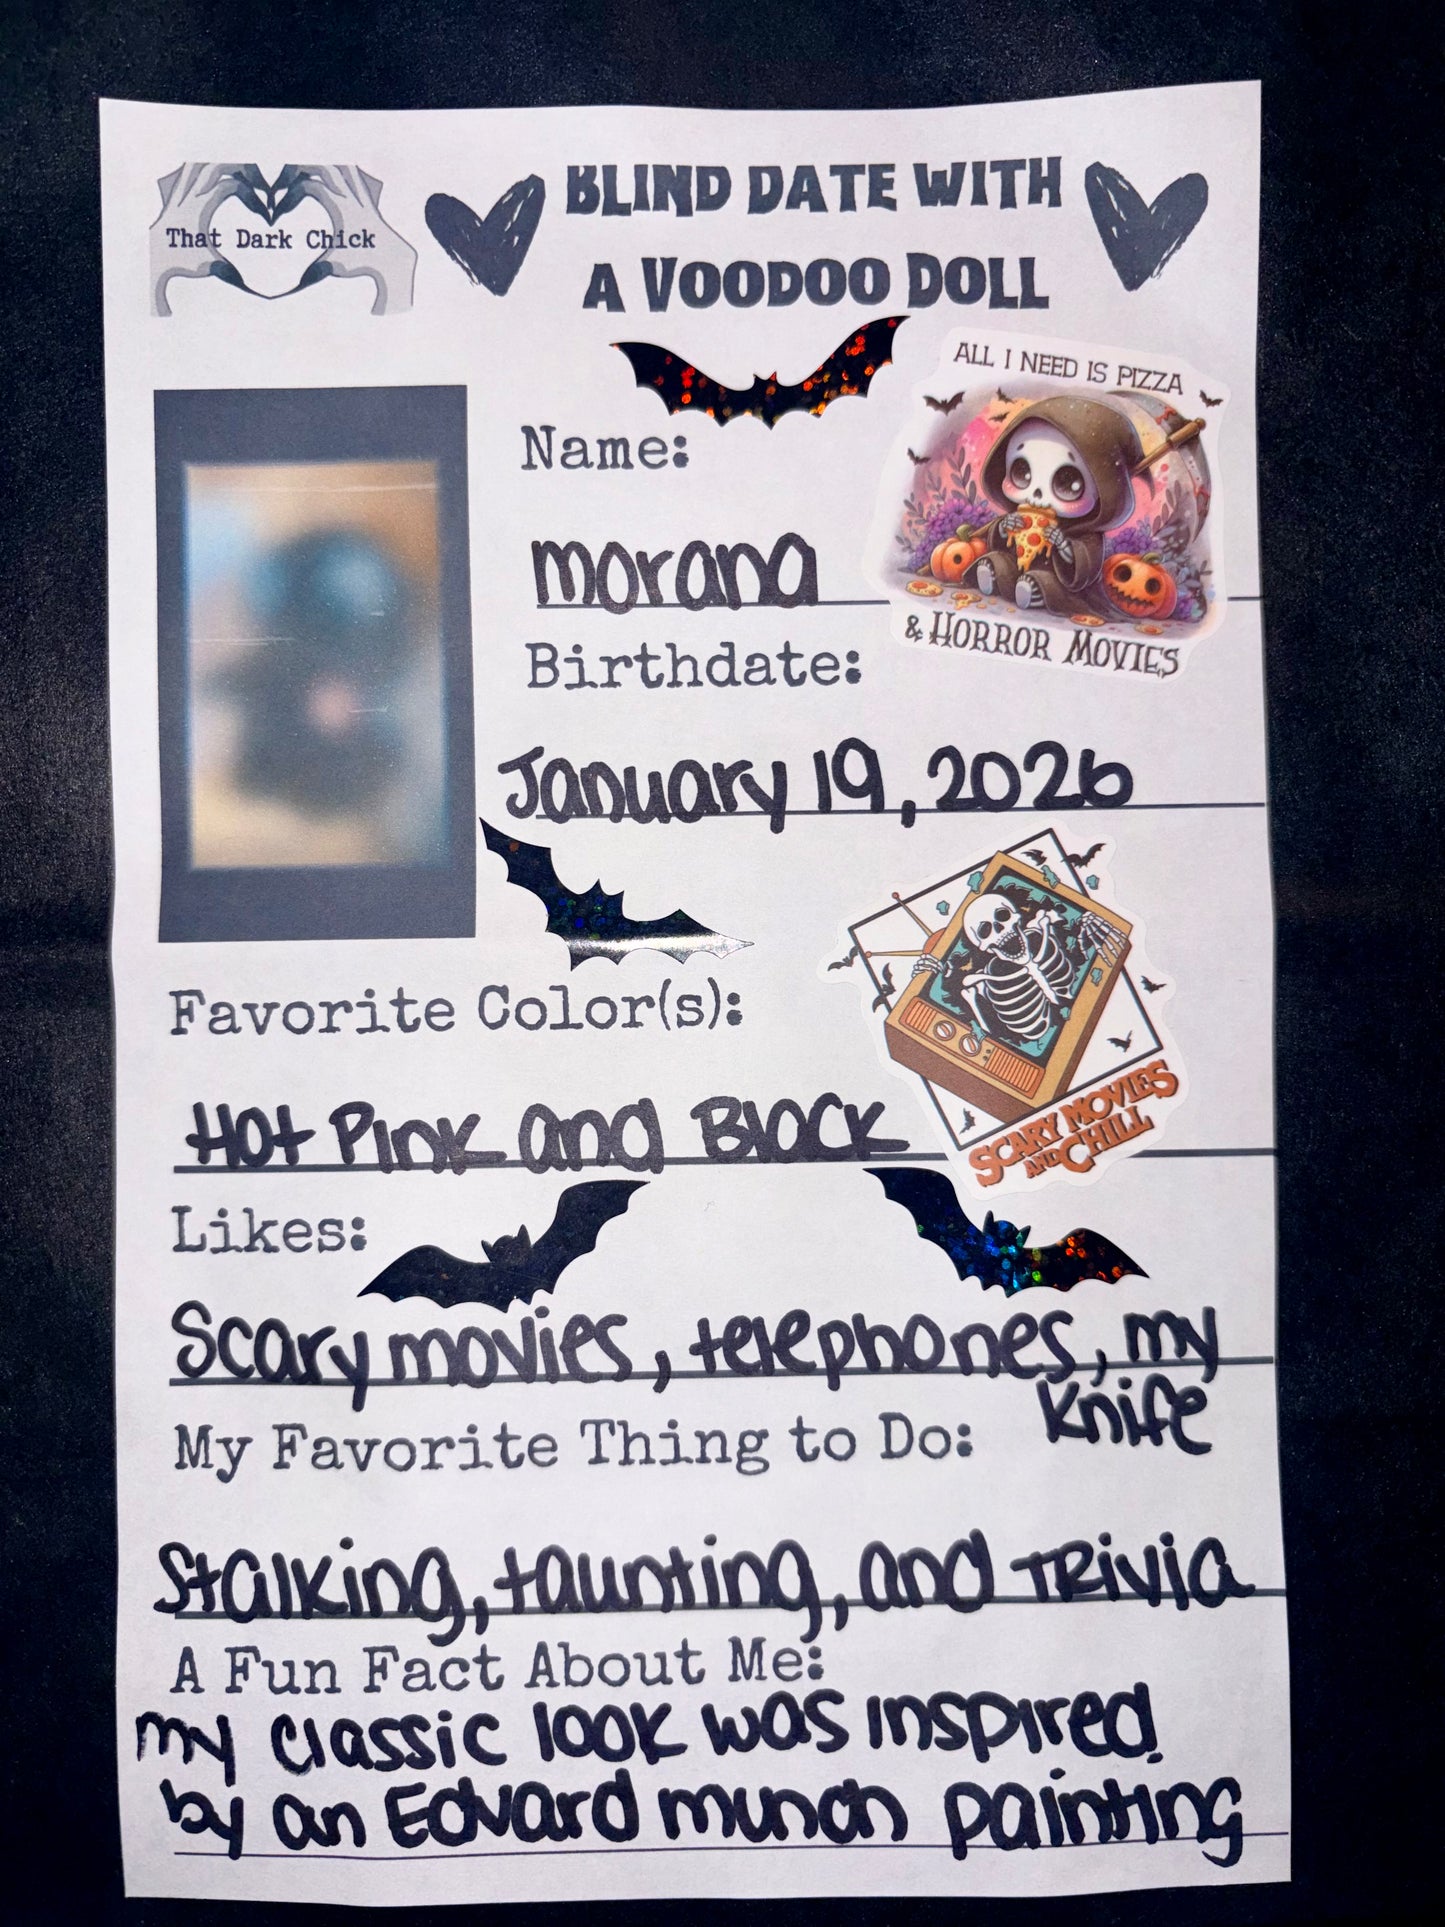 That Dark Chick
BLIND DATE WITH
A VOODOO DOLL
ALL I NEED IS PIZZA
& HORROR MOVIES
Name:
morana
Birthdate:
January 19, 2026
Favorite Color(s):
Hot Pink and Black
SCARY MOVIES
AND CHILL
Likes:
Scary movies, telephones, my
knife
My Favorite Thing to Do:
Stalking, taunting, and TRivia
A Fun Fact About Me:
my classic look was inspired
by an Edvard munch painting